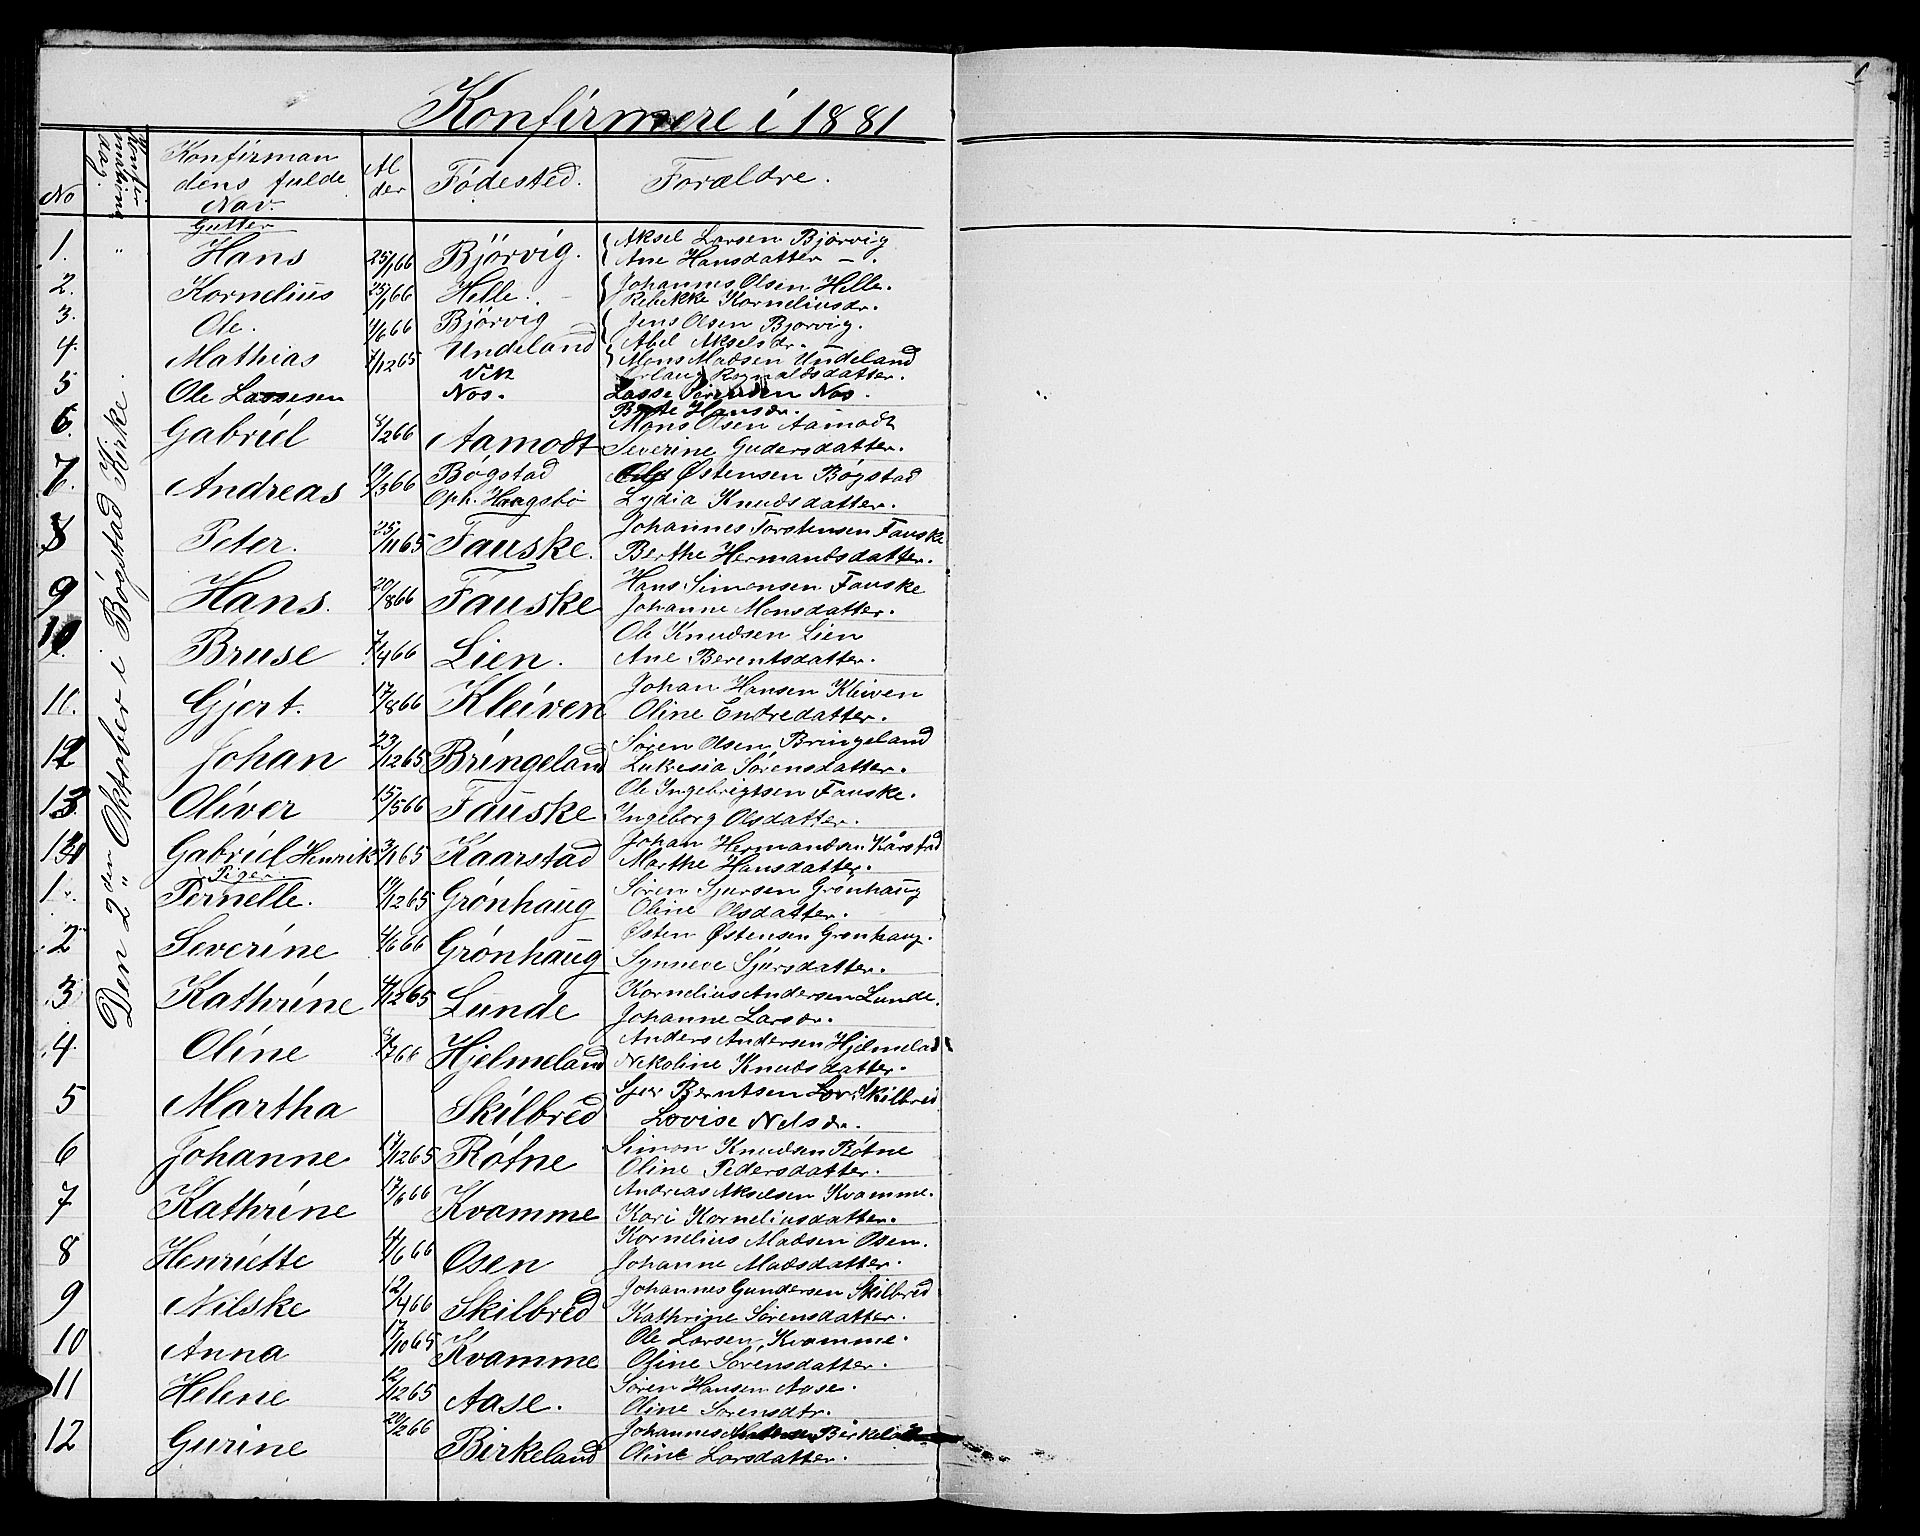 Konfirmere i 1881
No
Konfirmations dag.
Konfirman
dens fulde
Nav.
Al
der
Fødested.
Forældre.
Den 2den Oktober i Bøgstad Kirke.
Gutter
1. " Hans 25/1 66 Bjørvig. Aksel Larsen Bjørvig
Ane Hansdatter — .
2. Kornelius 25/1 66 Helle. Johannes Olsen Helle.
Rebekke Korneliusdr.
3. Ole. 4/6 66 Bjørvig Jens Olsen Bjørvig.
Abel Akselsdr.
4. Mathias 7/12 65 Undeland Mons Madsen Undeland
Vik Ragnaldsdatter.
5 Ole Lassesen Nos. Lasse Nos.
Hansdr.
6. Gabriel /2 66 Aamodt Mons Olsen Aamodt
Severine Gudersdatter.
7. Andreas 19/3 66 Bøgstad Østensen Bøgstad
Oph. Haagsbø Lydia Knudsdatter.
8 Peter. 25/11 65 Fauske. Johannes Torstensen Fauske
Berthe Hermandsdatter.
9 Hans. 20/8 66 Fauske Hans Simonsen Fauske
Johanne Monsdatter.
10 Bruse 7/4 66 Lien. Ole Knudsen Lien
Ane Berentsdatter.
11. Gjert. 17/8 66 Kleiven Johan Hansen Kleiven
Oline Endredatter.
12 Johan 23/12 65 Bringeland Søren Olsen Bringeland
Lukresia Sørensdatter.
13 Oliver 15/5 66 Fauske Ole Ingebrigtsen Fauske.
Ingeborg Olsdatter.
Gabriel Henrik 3/1 65 Kaarstad Johan Hermandsen Kårstad
Marthe Hansdatter.
Piger.
1. Pernelle. 19/12 65 Grønhaug Søren Sjursen Grønhaug
Oline Olsdatter.
2 Severine 4/6 66 Grønhaug Østen Østensen Grønhaug.
Synneve Sjursdatter.
3 Kathrine 4/12 65 Lunde Kornelius Andersen Lunde.
Johanne Larsdr.
4. Oline /7 66 Hjelmeland Anders Andersen Hjelmelad
Nekoline Knudsdatter.
5 Martha Skilbred Sjur Berntsen Skilbred
Lovise Nelsdr.
6 Johanne 17/12 65 Røfne Simon Knudsen Røfne
Oline Pedersdatter.
7 Kathrine 17/6 66 Kvamme Andreas Akselsen Kvamme.
Kari Korneliusdatter.
8 Henriette 4/6 66 Osen Kornelius Madsen Osen.
Johanne Madsdatter.
9 Nilske 12/4 66 Skilbred Johannes Gundersen Skilbred
Kathrine Sørensdatter.
10 Anna 17/10 65 Kvamme Ole Larsen Kvamme.
Oline Sørensdatter.
11 Helene 12/12 65 Aase. Søren Hansen Aase.
Oline Sørensdtr.
12 Gurine 20/2 66 Birkeland Johannes
Oline Larsdatter.